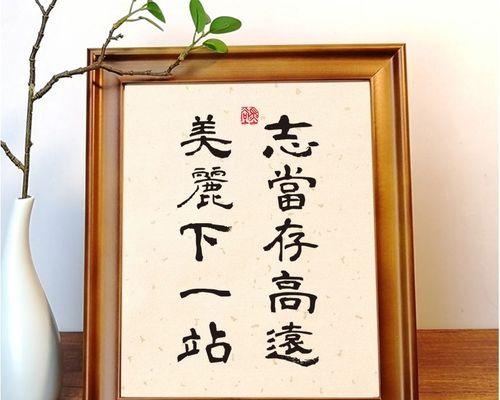 志當存高遠
美麗下一站